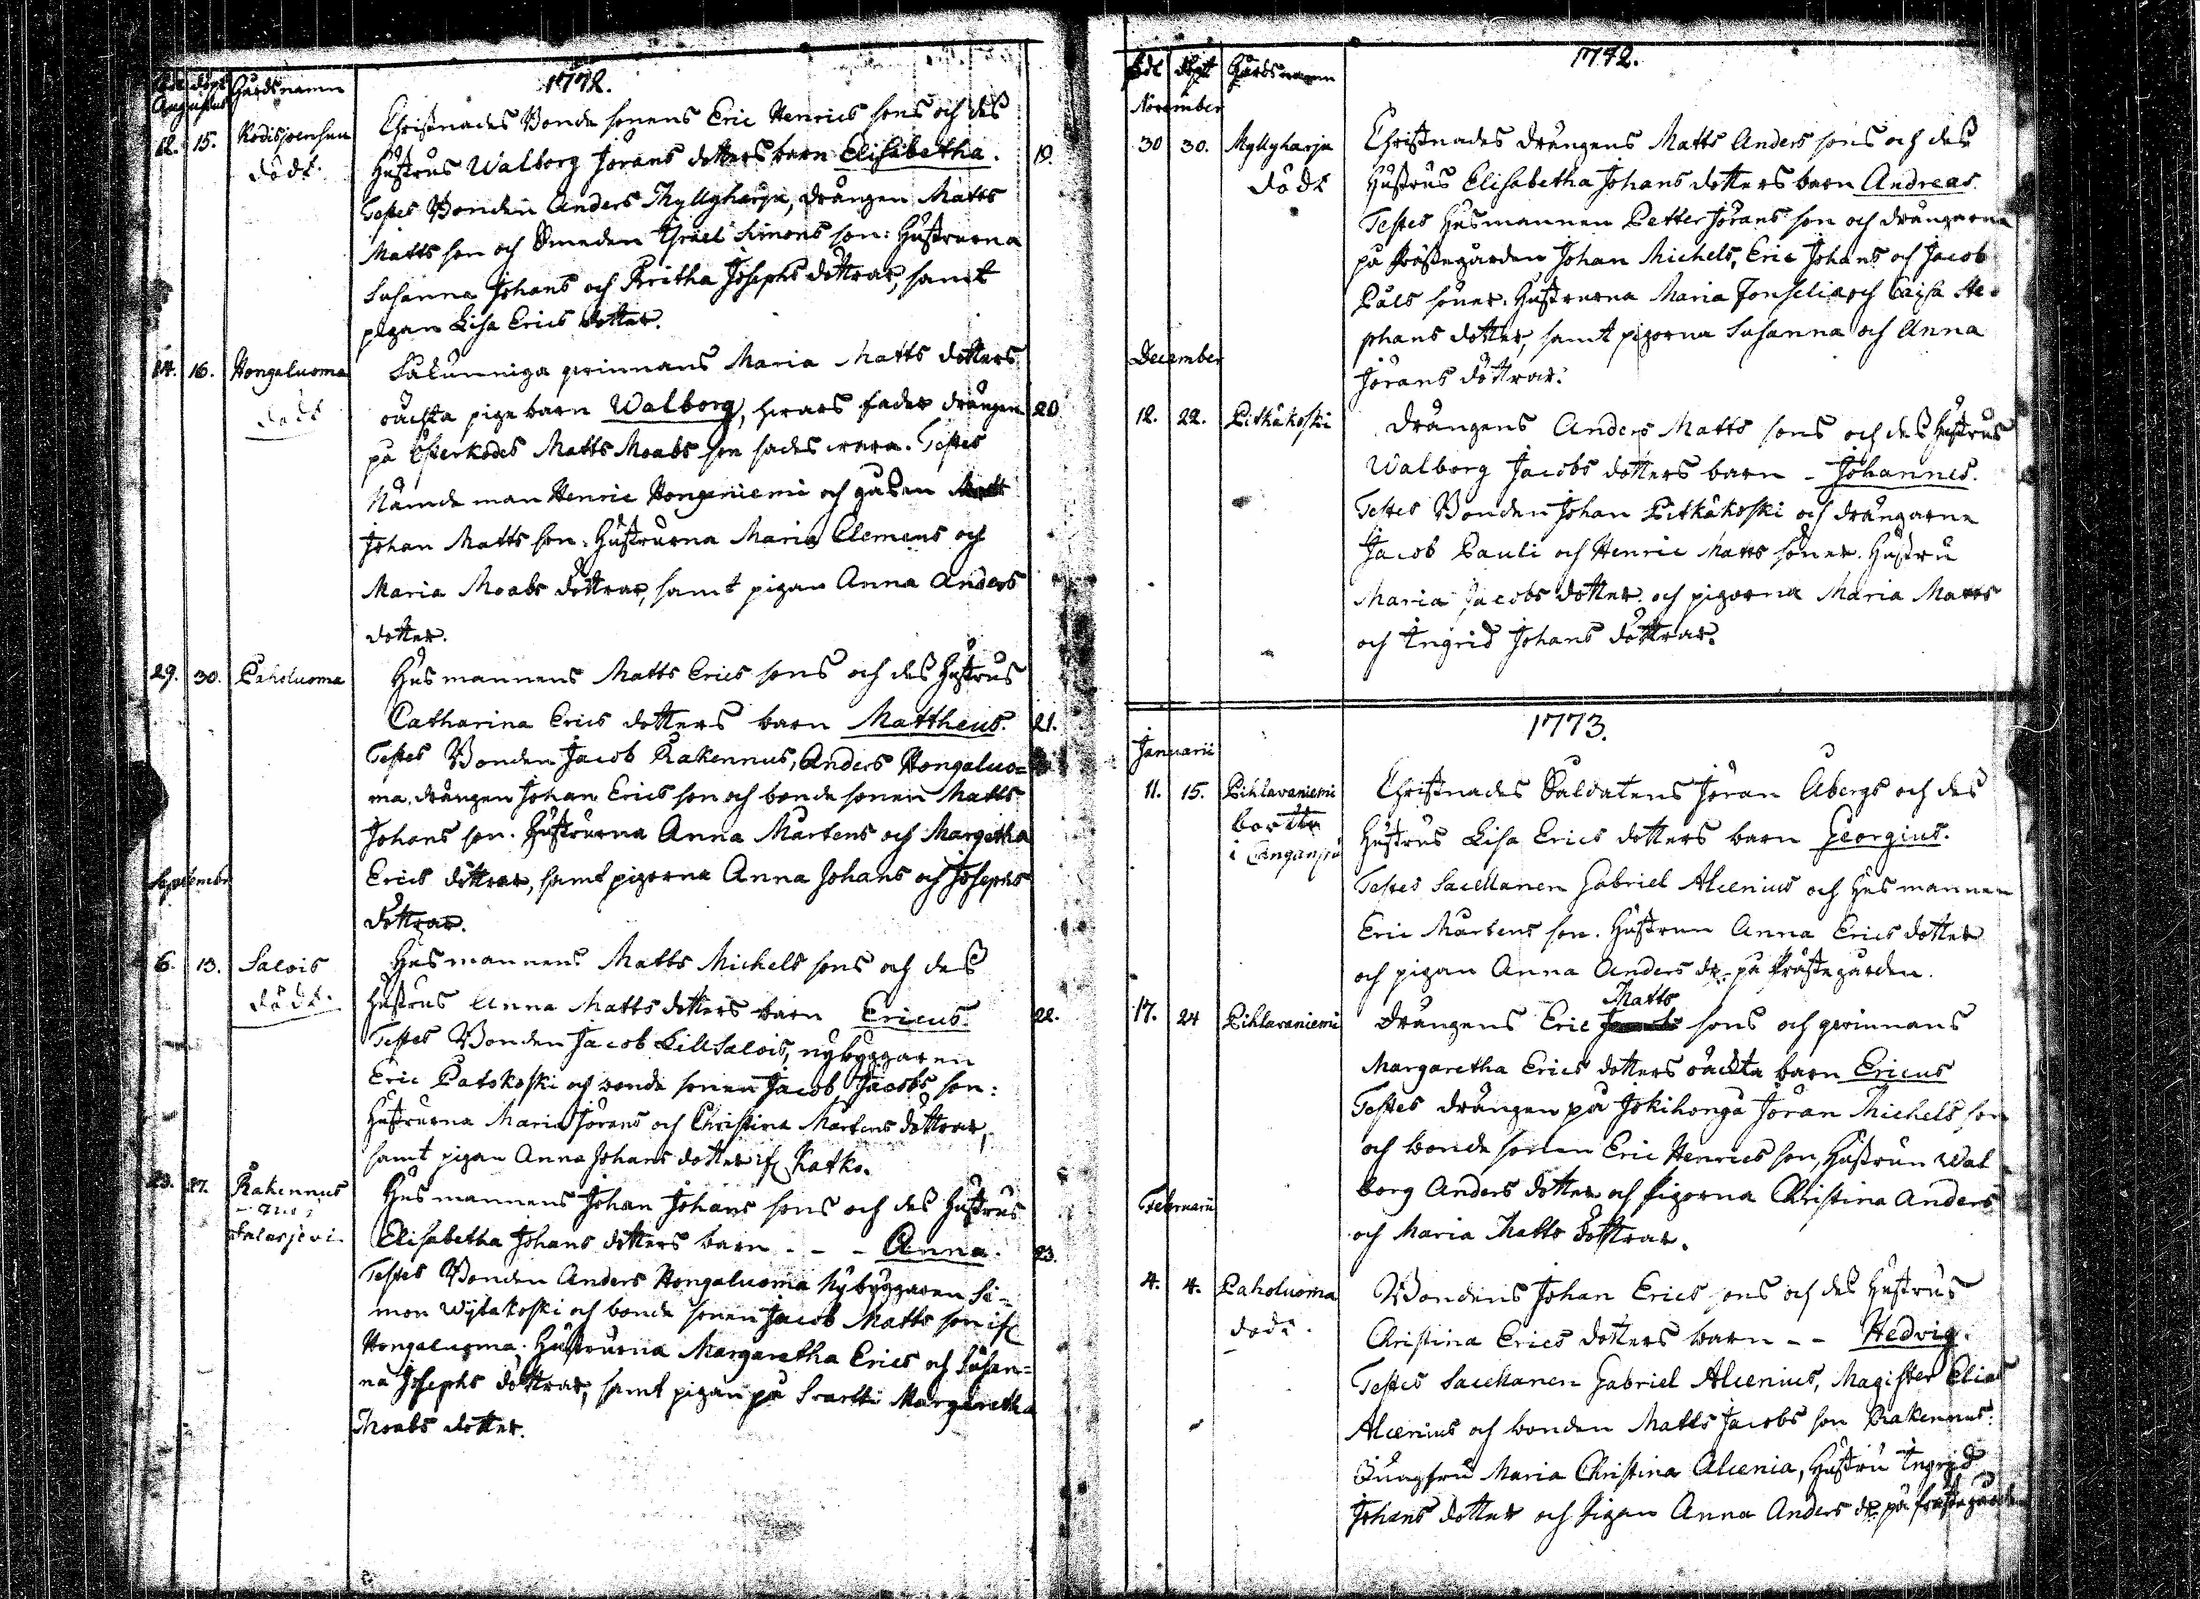 1772.
födt döpt Gårdsnamn
Augustus
12. 15. Kodisjoensuu Christnades Bonde sonens Eric Henrics sons och des
död. Hustrus Walborg Jörans dotters barn Elisabetha. 19.
Testes Bonden Anders Myllyharju, drängen Matts
Matts son och Smeden Israel Simons son: Hustrurna
Susanna Johans och Britha Josephs döttrar, samt
pigan Lisa Erics dotter.
14. 16. Hongaluoma Qvinnans Maria Matts dotters
död oächta pige barn Walborg, hwars fader drängen 20
på Österkodes Matts Moabs son sades wara. Testes
Nämde man Henric Hongoniemi och
Johan Matts son. Hustrurna Maria Clemens och
Maria Moabs döttrar, samt pigan Anna Anders
dotter.
29. 30. Paholuoma Husmannens Matts Erics sons och des Hustrus
Catharina Erics dotters barn Mattheus. 21.
Testes Bonden Jacob Rakennus, Anders Hongaluo=
ma, drängen Johan Erics son och bonde sonen Matts
Johans son. Hustrurna Anna Mårtens och Margetha
Erics döttrar, samt pigorna Anna Johans och Josephs
döttrar.
September
6. 13. Salois Husmannens Matts Michels sons och des
död. Hustrus Anna Matts dotters barn Ericus. 22.
Testes Bonden Jacob Lillsalois, nybyggaren
Eric Patokoski och bonde sonen Jacob Jacobs son:
Hustrurna Maria Jörans och Christina Mårtens döttrar,
samt pigan Anna Johans dotter if Katko.
23. 27. Rakennus Husmannens Johan Johans sons och des Hustrus
Jalasjervi. Elisabetha Johans dotters barn - - - Anna. 23.
Testes Bonden Anders Hongaluoma Nybyggaren Si=
mon Wylakoski och bonde sonen Jacob Matts son if
Hongaluoma. Hustrurna Margaretha Erics och Susan=
na Josephs döttrar, samt pigan på Svartti Margaretha
Moabs dotter.
1772.
födt döpt Gårdsnamn
November
30 30. Myllyharju Christnades drängens Matts Anders sons och des
död Hustrus Elisabetha Johans dotters barn Andreas.
Testes Husmannen Petter Jörans son och drängarne
på Prästegården Johan Michels, Eric Johans och Jacob
Påls söner. Hustrurna Maria Fonselia och Caisa Ste=
phans dotter, samt pigorna Susanna och Anna
Jörans döttrar.
December
12. 22. Pitkäkoski drängens Anders Matts sons och des Hustrus
Walborg Jacobs dotters barn - Johannes.
Testes Bonden Johan Pitkäkoski och drängarne
Jacob Pauli och Henric Matts söner. Hustru
Maria Jacobs dotter och pigorna Maria Matts
och Ingrid Johans döttrar.
1773.
Januarii
11. 15. Pihlavaniemi Christnades Saldatens Jöran Åbergs och des
i Hustrus Lisa Erics dotters barn Georgius.
Testes Sacellanen Gabriel Alcenius och Husmannen
Eric Mårtens son. Hustrun Anna Erics dotter
och pigan Anna Anders dr. på Prästegården.
17. 24 Pihlavaniemi drängens Eric Matts sons och qvinnans
Margaretha Erics dotters oächta barn Ericus
Testes drängen på Jokihonga Jöran Michels son
och bonde sonen Eric Henrics son, Hustrun Wal
borg Anders dotter och Pigorna Christina Anders
och Maria Matts döttrar.
Februarii
4. 4. Paholuoma Bondens Johan Erics sons och des Hustrus
död. Christina Erics dotters barn - - Hedvig.
Testes Sacellanen Gabriel Alcenius, Magister Elias
Alcenius och bonden Matts Jacobs son Rakennus.
Jungfru Maria Christina Alcenia, Hustru Ingrid
Johans dotter och Pigan Anna Anders dr. på Prästegården